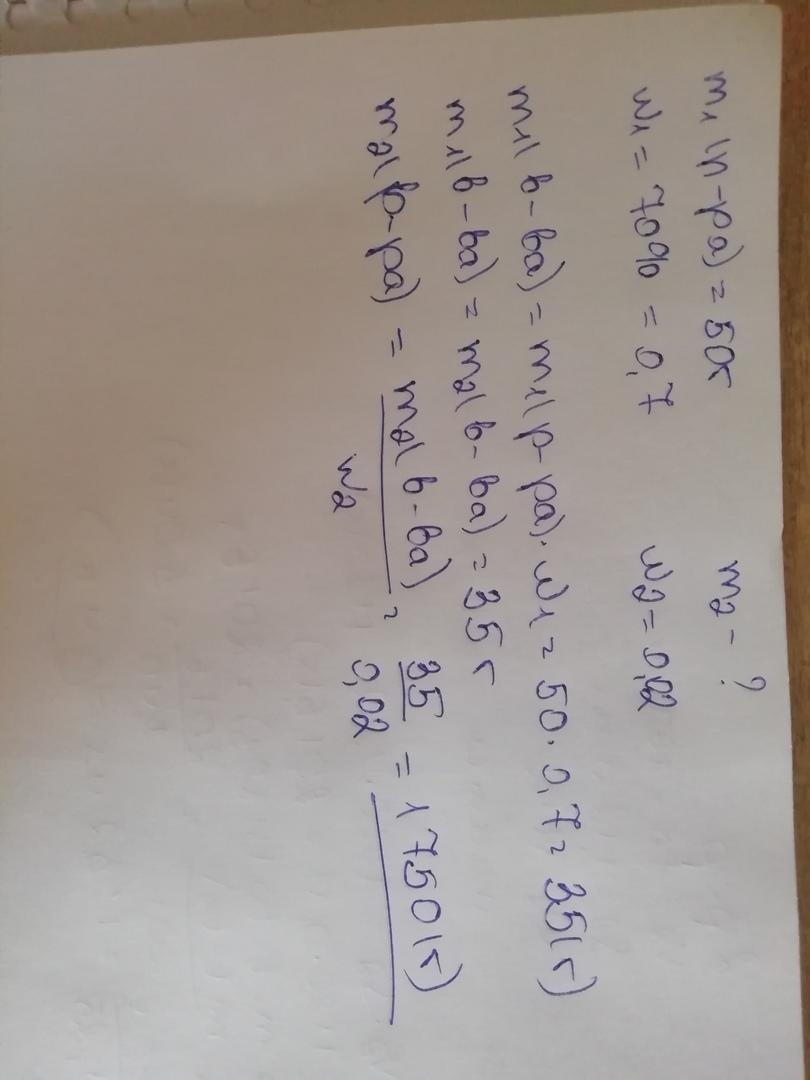 m₁(р-ра) = 50г m₂ - ?
w₁ = 70% = 0,7 w₂ = 0,02
m₁(в-ва) = m₁(р-ра)·w₁ = 50·0,7 = 35(г)
m₁(в-ва) = m₂(в-ва) = 35г
m₂(р-ра) = m₂(в-ва)/w₂ = 35/0,02 = 1750(г)